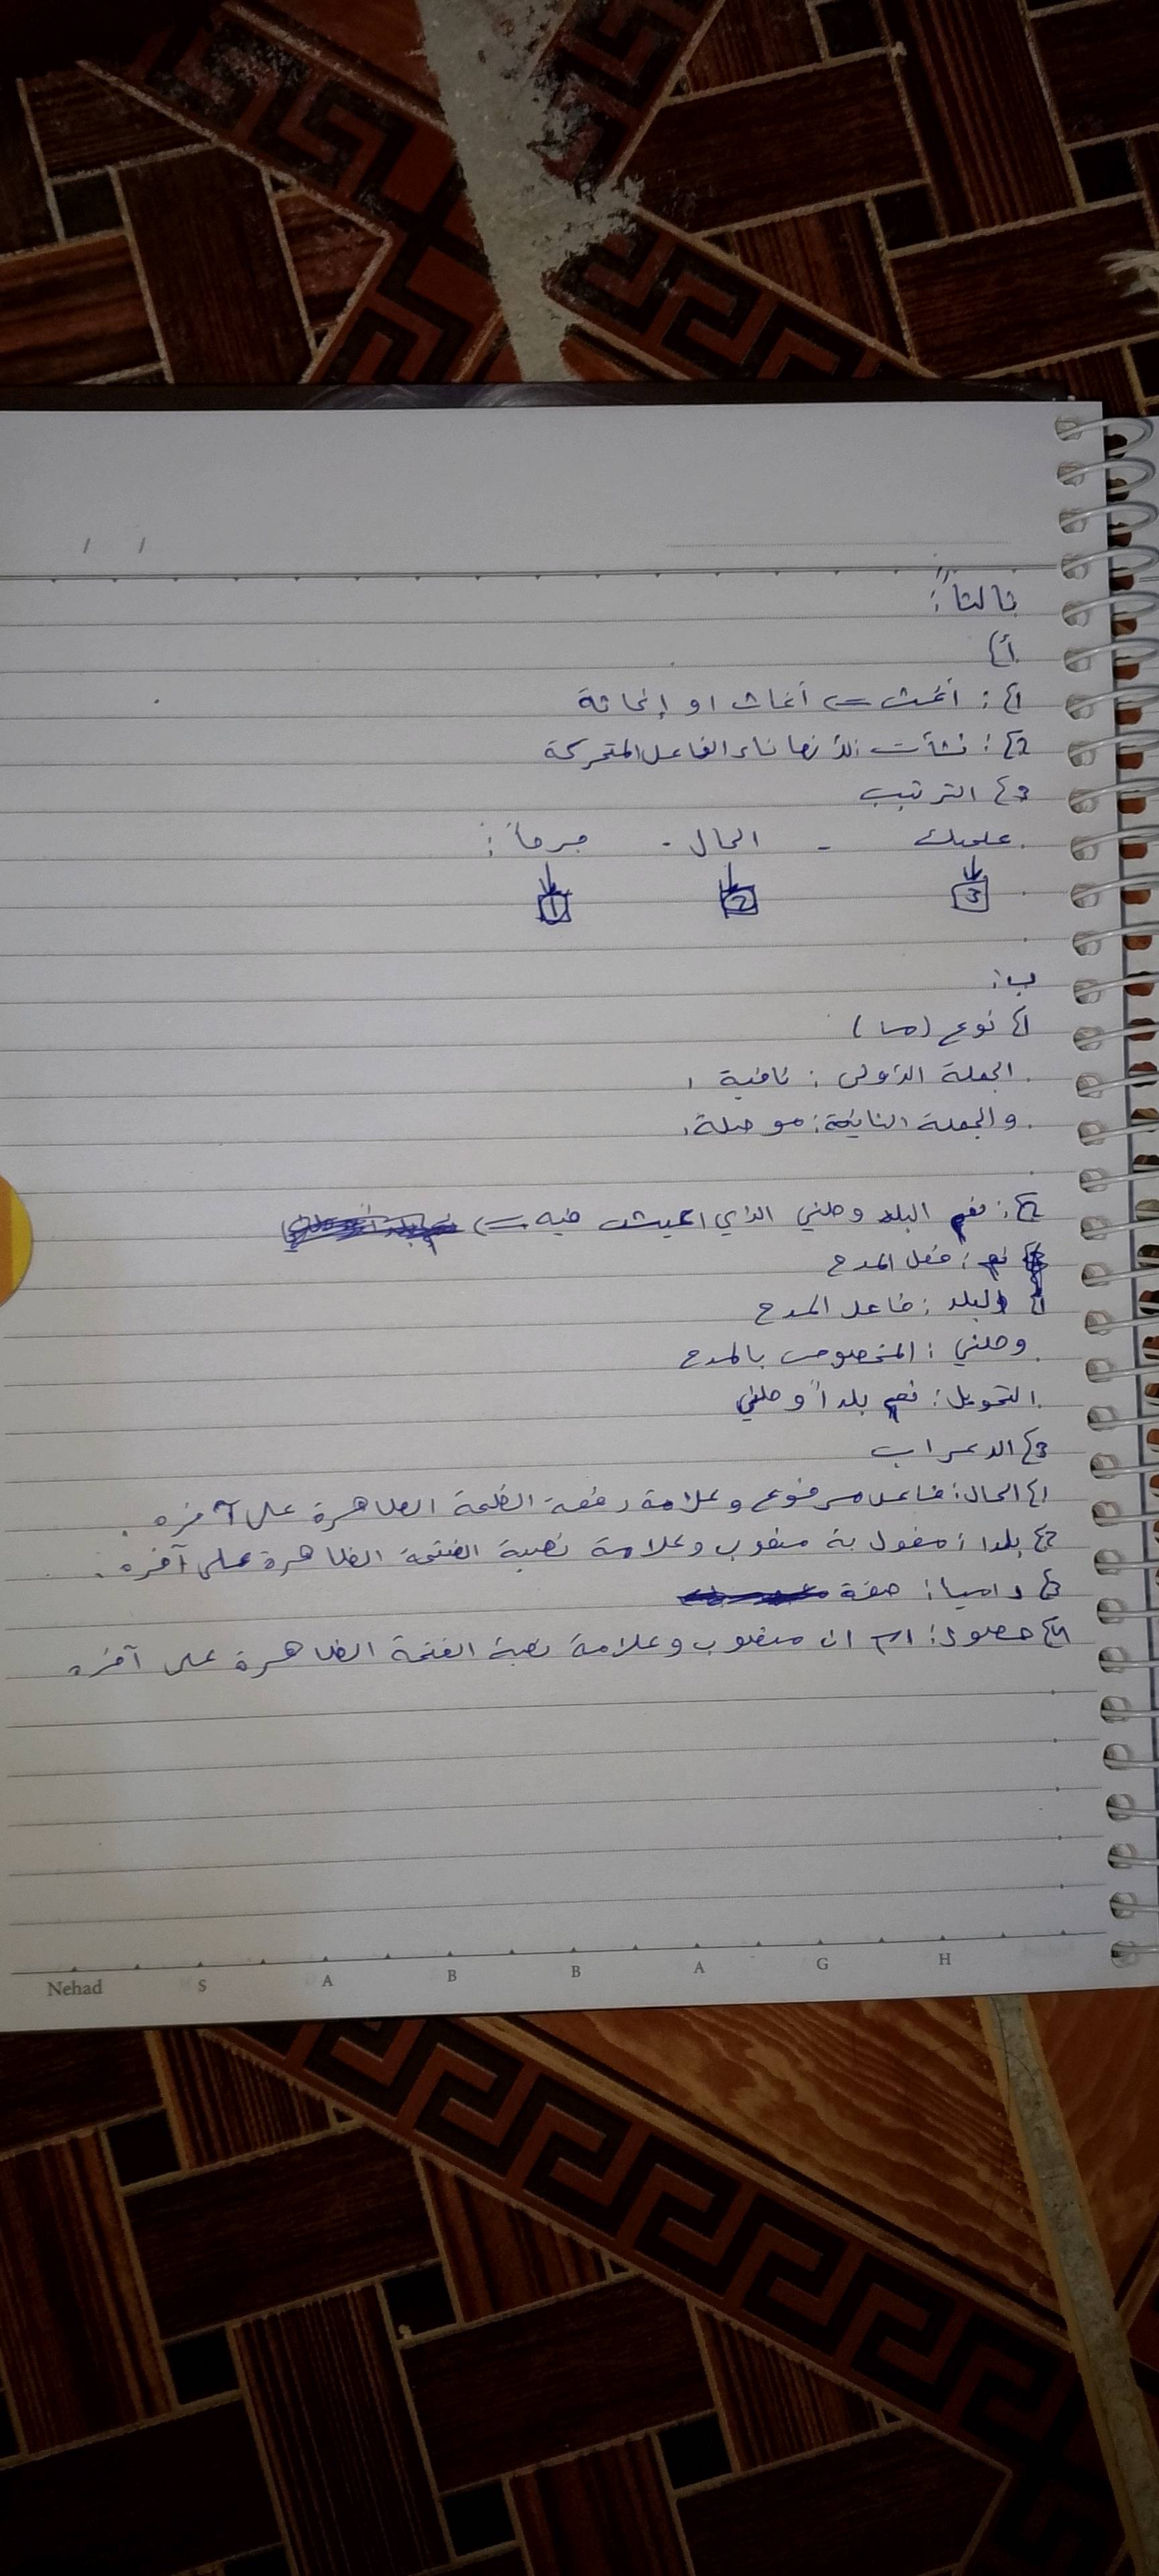 ثالثاً:
أ}
1}: أغث => أغاث او إغاثة
2}: نشأت لأنها تاء الفاعل المتحركة
3} الترتيب
عليك - الحال - جرحاً:
3 2 1
ب:
1} نوع (ما)
الجملة الأولى: نافية
والجملة الثانية: موصلة
2}: نعم البلد وطني الذي اعيش فيه =>
نعم: فعل المدح
البلد: فاعل المدح
وطني: المخصوص بالمدح
التحويل: نعم بلداً وطني
3} الاعراب
1} الحال: فاعل مرفوع وعلامة رفعة الظمة الظاهرة على آخره.
2} بلدا: مفعول بة منصوب وعلامة نصبة الفتحة الظاهرة على آخره.
3} داميا: صفة
4} حصول: اسم ان منصوب وعلامة نصبة الفتحة الظاهرة على آخره
Nehad S A B B A G H